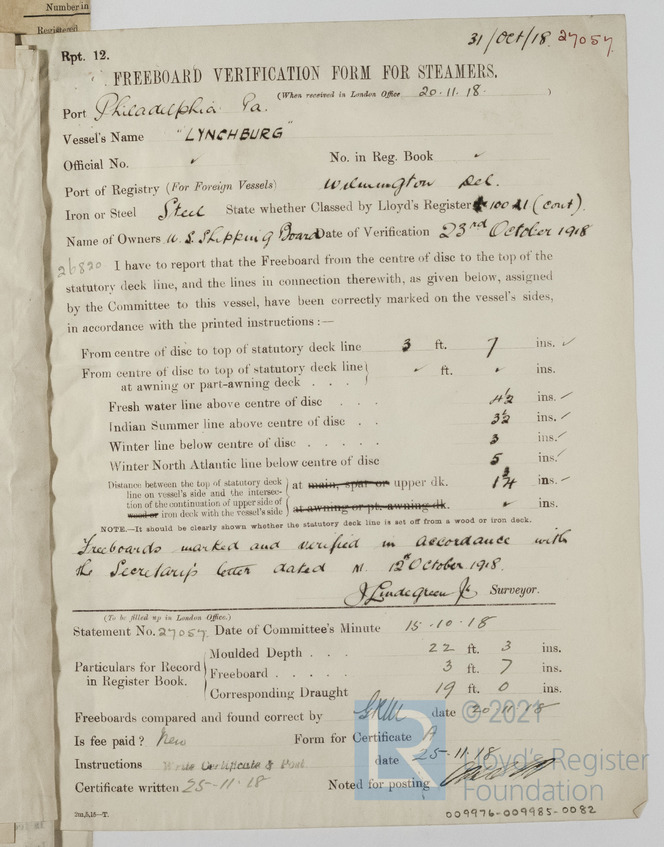 Number in
Registered
31/Oct/18. 27057.
Rpt. 12.
FREEBOARD VERIFICATION FORM FOR STEAMERS.
(When received in London Office 20.11.18. )
Port Philadelphia Pa.
Vessel's Name "LYNCHBURG"
Official No. ✓ No. in Reg. Book ✓
Port of Registry (For Foreign Vessels) Wilmington Del.
Iron or Steel Steel State whether Classed by Lloyd's Register 100 A1 (cont).
Name of Owners U.S. Shipping Board Date of Verification 23rd October 1918
26820 I have to report that the Freeboard from the centre of disc to the top of the
statutory deck line, and the lines in connection therewith, as given below, assigned
by the Committee to this vessel, have been correctly marked on the vessel's sides,
in accordance with the printed instructions:—
From centre of disc to top of statutory deck line 3 ft. 7 ins. ✓
From centre of disc to top of statutory deck line } ✓ ft. ✓ ins.
at awning or part-awning deck . . .
Fresh water line above centre of disc . . . 4½ ins. ✓
Indian Summer line above centre of disc . . 3½ ins. ✓
Winter line below centre of disc . . . . . 3 ins. ✓
Winter North Atlantic line below centre of disc 5 ins. ✓
Distance between the top of statutory deck
line on vessel's side and the intersec- at main, spar or upper dk. 1¾ ins. ✓
tion of the continuation of upper side of
wood or iron deck with the vessel's side at awning or pt. awning dk. ✓ ins.
NOTE.—It should be clearly shown whether the statutory deck line is set off from a wood or iron deck.
Freeboards marked and verified in accordance with
the Secretary's letter dated M. 12th October 1918.
J Lindegreen Jr. Surveyor.
(To be filled up in London Office.)
Statement No. 27057. Date of Committee's Minute 15.10.18
Particulars for Record in Register Book.
Moulded Depth . . . 22 ft. 3 ins.
Freeboard . . . . . 3 ft. 7 ins.
Corresponding Draught 19 ft. 0 ins.
Freeboards compared and found correct by date 20.11.18
Is fee paid? New Form for Certificate A
Instructions Write Certificate & Post date 25-11-18
Certificate written 25-11-18 Noted for posting
2m,5,16—T.
009976-009985-0082
LR
© 2021
Lloyd's Register
Foundation